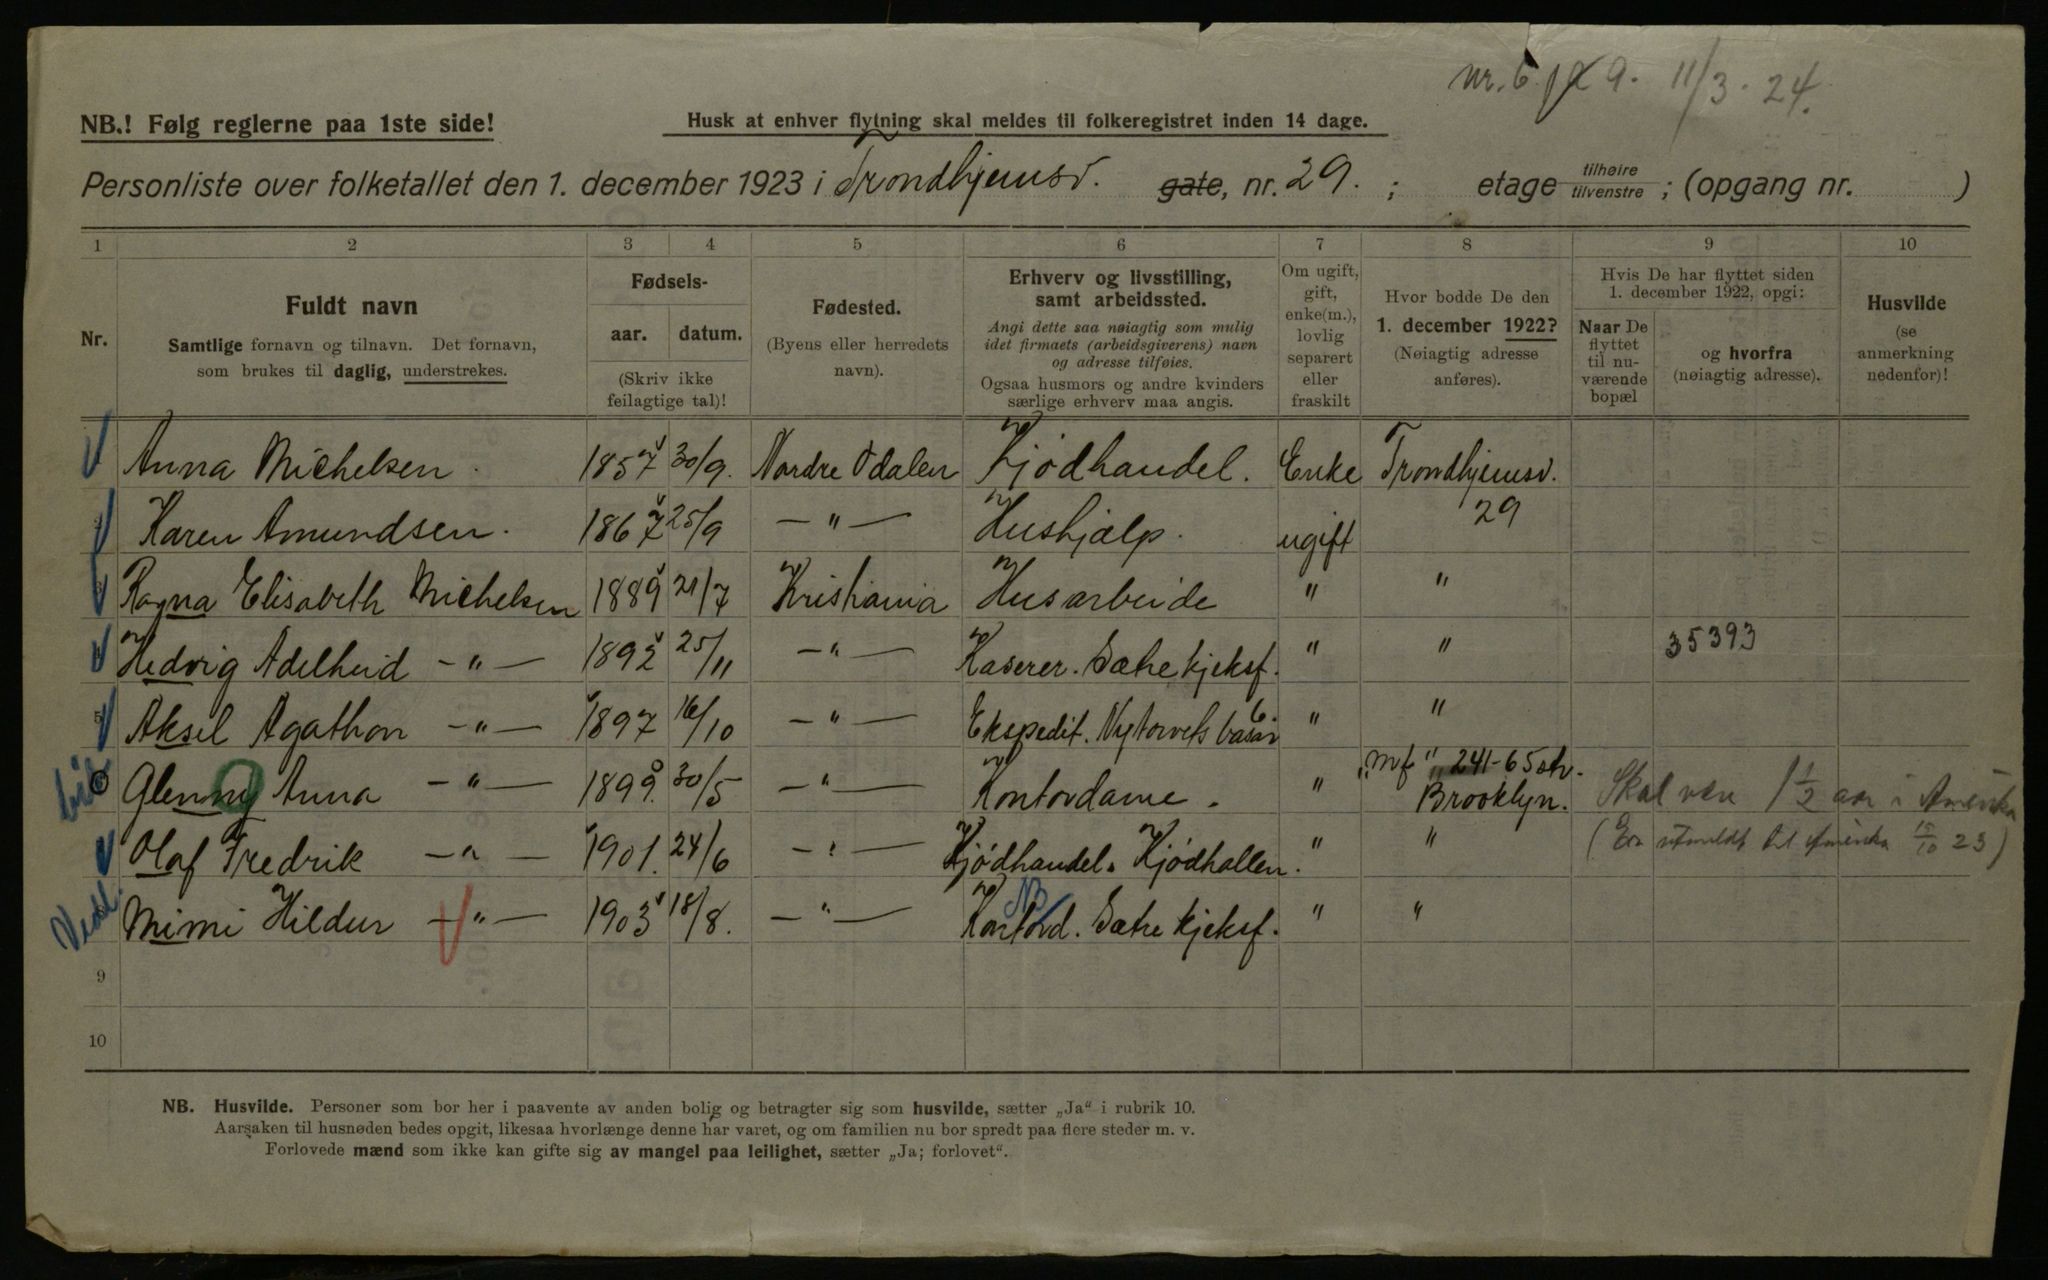 nr. 6. 9. 11/3. 24.
NB.! Følg reglerne paa 1ste side!
Husk at enhver flytning skal meldes til folkeregistret inden 14 dage.
Personliste over folketallet den 1. december 1923 i Trondhjemsv. gate, nr. 29. ; etage tilhøire tilvenstre ; (opgang nr. )
1 2 3 4 5 6 7 8 9 10
Nr.
Fuldt navn
Samtlige fornavn og tilnavn. Det fornavn,
som brukes til daglig, understrekes.
Fødsels-
aar. datum.
(Skriv ikke
feilagtige tal)!
Fødested.
(Byens eller herredets
navn).
Erhverv og livsstilling,
samt arbeidssted.
Angi dette saa nøiagtig som mulig
idet firmaets (arbeidsgiverens) navn
og adresse tilføies.
Ogsaa husmors og andre kvinders
særlige erhverv maa angis.
Om ugift,
gift,
enke(m.),
lovlig
separert
eller
fraskilt
Hvor bodde De den
1. december 1922?
(Nøiagtig adresse
anføres).
Hvis De har flyttet siden
1. december 1922, opgi:
Naar De
flyttet
til nu-
værende
bopæl
og hvorfra
(nøiagtig adresse).
Husvilde
(se
anmerkning
nedenfor)!
Anna Michelsen. 1857 30/9. Nordre Odalen Kjødhandel. Enke Trondhjemsv.
Karen Amundsen. 1867 25/9 — " — Hushjælp. ugift 29
Ragna Elisabeth Michelsen 1889 21/7 Kristiania Husarbeide " "
Hedvig Adelheid — " — 1892 25/11 — " — Kaserer. Sætre kjeksf. " " 35393
5 Aksel Agathon — " — 1897 16/10 — " — Ekspedit. Nytorvets basar " "
Glenny Anna — " — 1899. 30/5 — " — Kontordame. " " 241-65 str. Brooklyn. Skal være 1 1/2 aar i Amerika
Olaf Fredrik — " — 1901. 24/6 — " — Kjødhandel. Kjødhallen. " " (Er utmeldt til Amerika 15/10 23)
Mimi Hildur — " — 1903 18/8. — " — NB Kontord. Sætre kjeksf. " "
9
10
NB. Husvilde. Personer som bor her i paavente av anden bolig og betragter sig som husvilde, sætter „Ja" i rubrik 10.
Aarsaken til husnøden bedes opgit, likesaa hvorlænge denne har varet, og om familien nu bor spredt paa flere steder m. v.
Forlovede mænd som ikke kan gifte sig av mangel paa leilighet, sætter „Ja; forlovet".